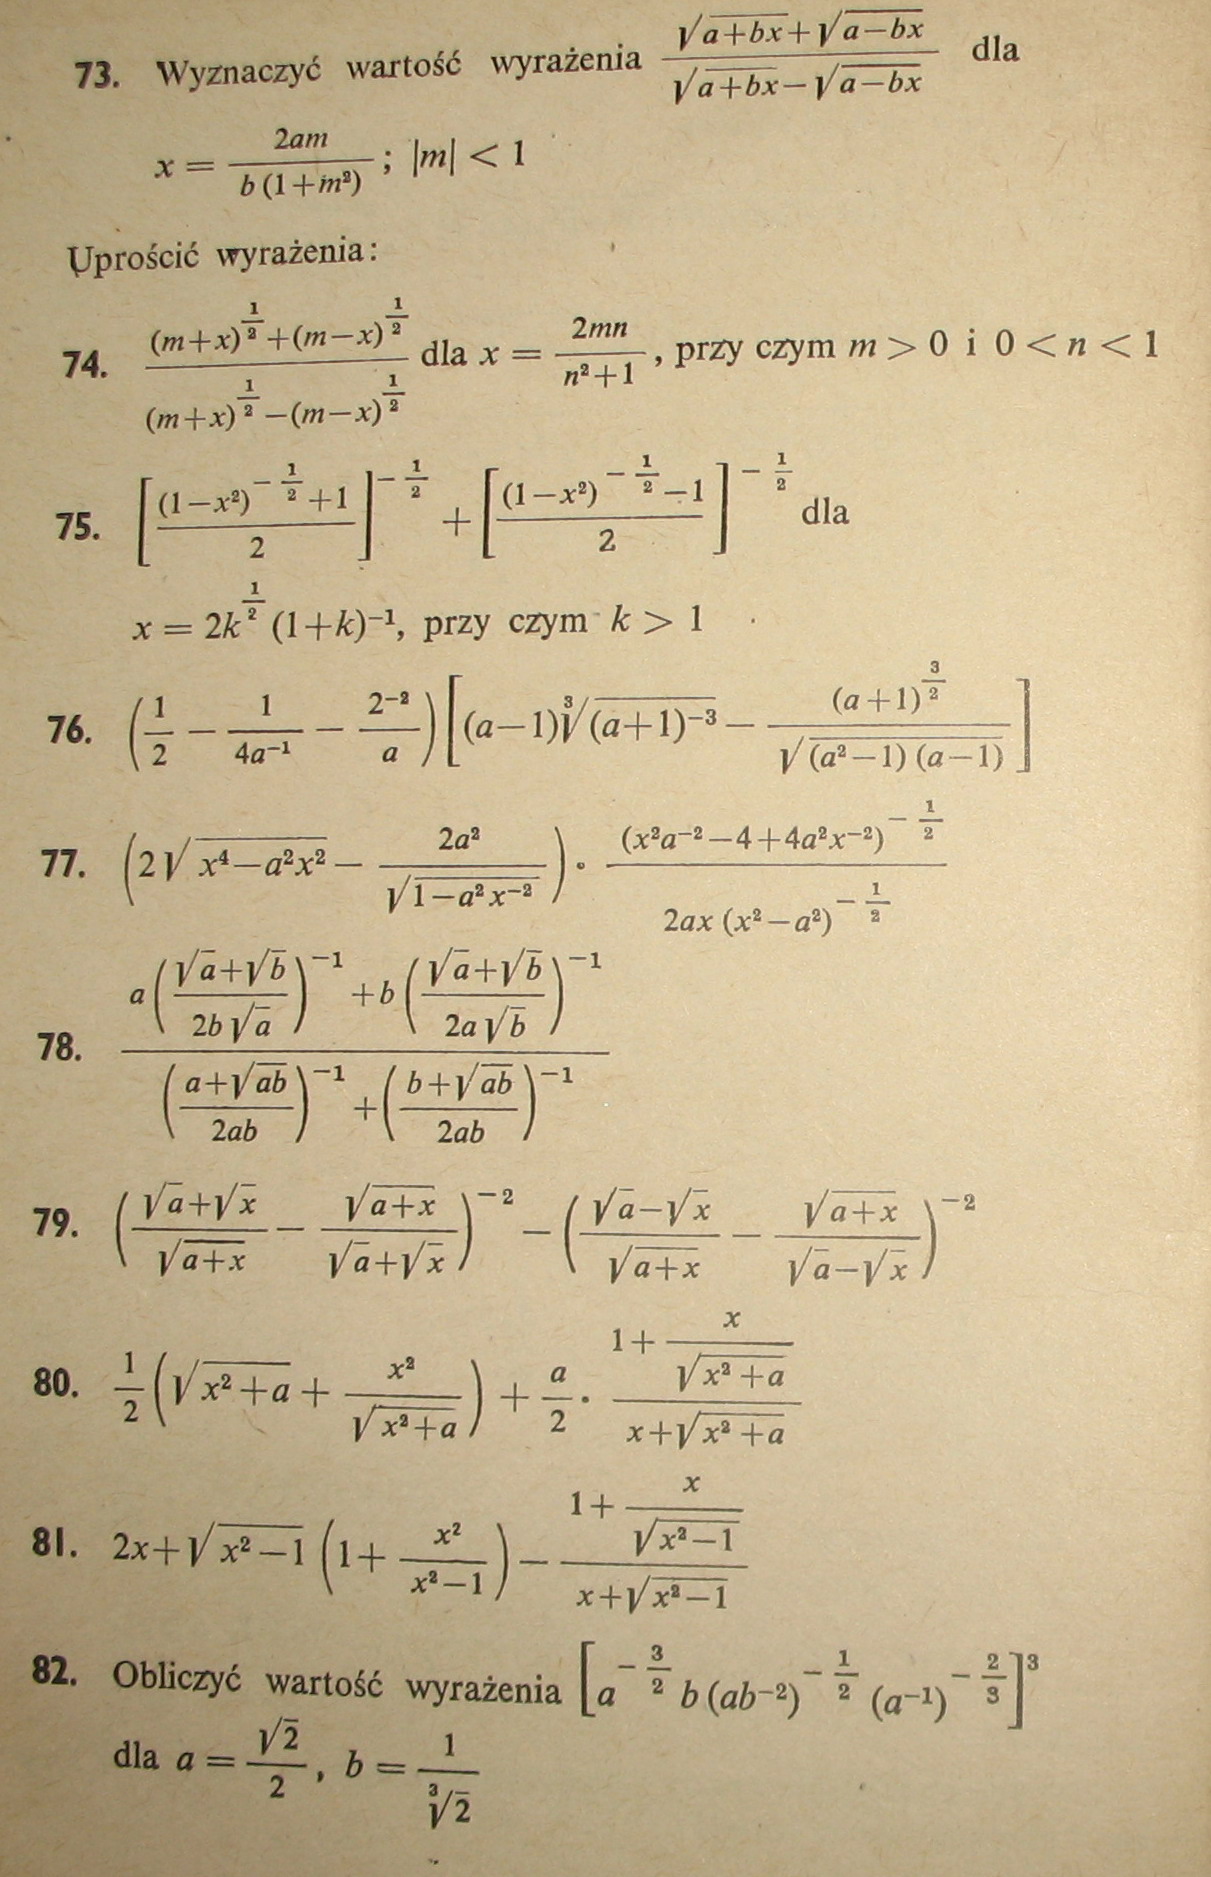 73. Wyznaczyć wartość wyrażenia \frac{\sqrt{a+bx}+\sqrt{a-bx}}{\sqrt{a+bx}-\sqrt{a-bx}} dla
x = \frac{2am}{b(1+m^2)}; |m| < 1
Uprościć wyrażenia:
74. \frac{(m+x)^{\frac{1}{2}}+(m-x)^{\frac{1}{2}}}{(m+x)^{\frac{1}{2}}-(m-x)^{\frac{1}{2}}} dla x = \frac{2mn}{n^2+1}, przy czym m > 0 i 0 < n < 1
75. \left[\frac{(1-x^2)^{-\frac{1}{2}}+1}{2}\right]^{-\frac{1}{2}} + \left[\frac{(1-x^2)^{-\frac{1}{2}}-1}{2}\right]^{-\frac{1}{2}} dla
x = 2k^{\frac{1}{2}}(1+k)^{-1}, przy czym k > 1
76. \left(\frac{1}{2} - \frac{1}{4a^{-1}} - \frac{2^{-2}}{a}\right)\left[(a-1)\sqrt[3]{(a+1)^{-3}} - \frac{(a+1)^{\frac{3}{2}}}{\sqrt{(a^2-1)(a-1)}}\right]
77. \left(2\sqrt{x^4-a^2x^2} - \frac{2a^2}{\sqrt{1-a^2x^{-2}}}\right) \cdot \frac{(x^2a^{-2}-4+4a^2x^{-2})^{-\frac{1}{2}}}{2ax(x^2-a^2)^{-\frac{1}{2}}}
78. \frac{a\left(\frac{\sqrt{a}+\sqrt{b}}{2b\sqrt{a}}\right)^{-1}+b\left(\frac{\sqrt{a}+\sqrt{b}}{2a\sqrt{b}}\right)^{-1}}{\left(\frac{a+\sqrt{ab}}{2ab}\right)^{-1}+\left(\frac{b+\sqrt{ab}}{2ab}\right)^{-1}}
79. \left(\frac{\sqrt{a}+\sqrt{x}}{\sqrt{a+x}} - \frac{\sqrt{a+x}}{\sqrt{a}+\sqrt{x}}\right)^{-2} - \left(\frac{\sqrt{a}-\sqrt{x}}{\sqrt{a+x}} - \frac{\sqrt{a+x}}{\sqrt{a}-\sqrt{x}}\right)^{-2}
80. \frac{1}{2}\left(\sqrt{x^2+a} + \frac{x^2}{\sqrt{x^2+a}}\right) + \frac{a}{2} \cdot \frac{1+\frac{x}{\sqrt{x^2+a}}}{x+\sqrt{x^2+a}}
81. 2x+\sqrt{x^2-1}\left(1+\frac{x^2}{x^2-1}\right) - \frac{1+\frac{x}{\sqrt{x^2-1}}}{x+\sqrt{x^2-1}}
82. Obliczyć wartość wyrażenia \left[a^{-\frac{3}{2}}b(ab^{-2})^{-\frac{1}{2}}(a^{-1})^{-\frac{2}{3}}\right]^3
dla a = \frac{\sqrt{2}}{2}, b = \frac{1}{\sqrt[3]{2}}